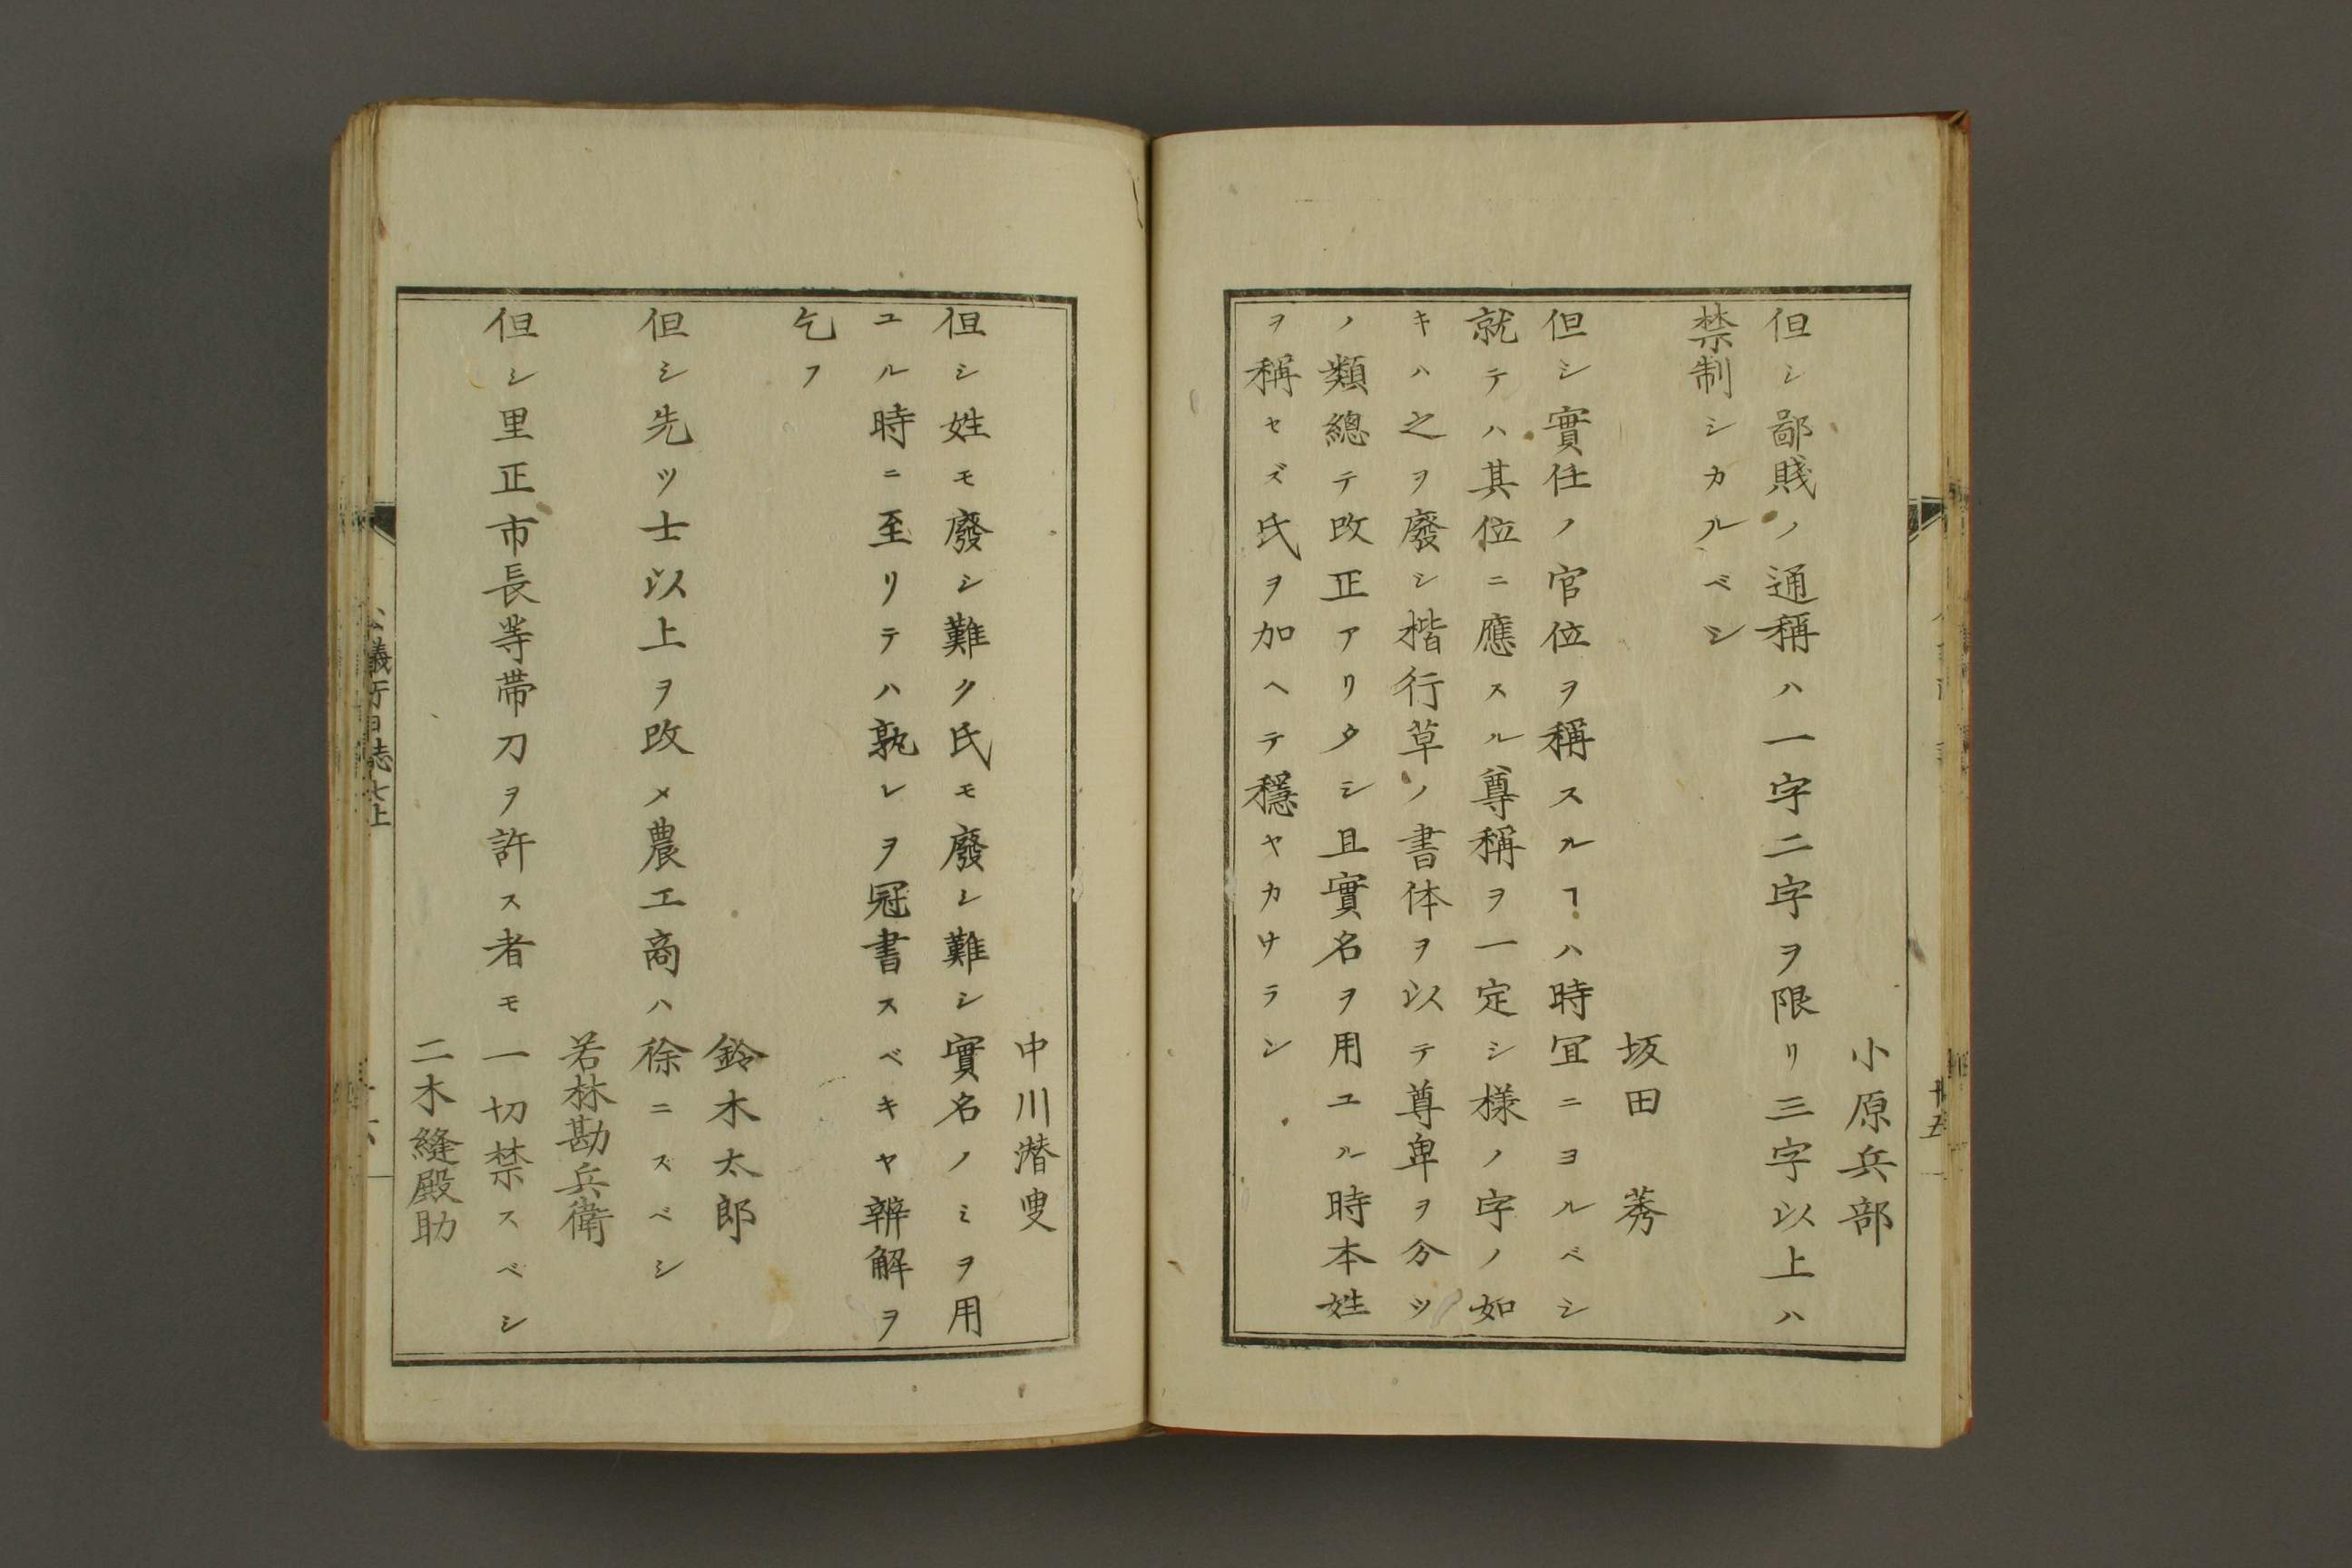 小原兵部
但シ鄙賤ノ通稱ハ一字二字ヲ限リ三字以上ハ
禁制シカルベシ
坂田莠
但シ實任ノ官位ヲ稱スルヿハ時宜ニヨルベシ
就テハ其位ニ應スル尊稱ヲ一定シ樣ノ字ノ如
キハ之ヲ廢シ楷行草ノ書体ヲ以テ尊卑ヲ分ツ
ノ類總テ改正アリタシ且實名ヲ用ユル時本姓
ヲ稱セズ氏ヲ加ヘテ穩ヤカサラン
中川潜叟
但シ姓モ廢シ難ク氏モ廢シ難シ實名ノミヲ用
ユル時ニ至リテハ孰レヲ冠書スベキヤ辨解ヲ
乞フ
鈴木太郎
但シ先ツ士以上ヲ改メ農工商ハ徐ニスベシ
若林勘兵衛
但シ里正市長等帶刀ヲ許ス者モ一切禁スベシ
二木縫殿助
議行日誌七上